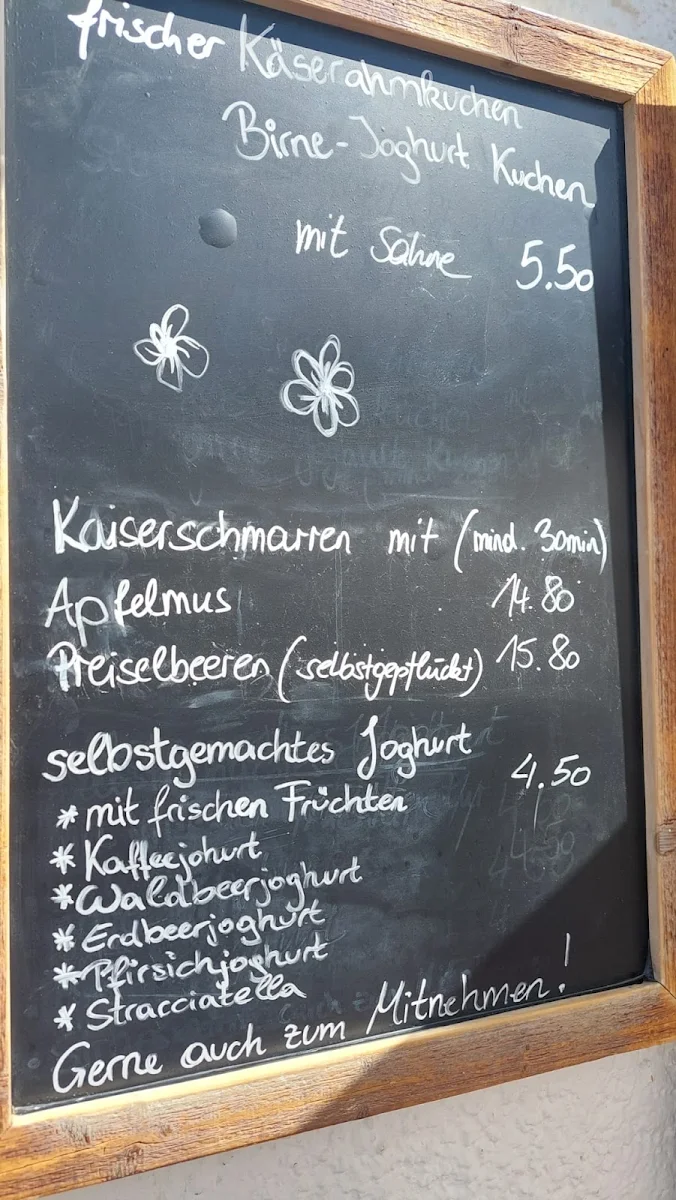 frischer Käserahmkuchen
Birne-Joghurt Kuchen
mit Sahne 5.50
Kaiserschmarren mit (mind. 30min)
Apfelmus 14.80
Preiselbeeren (selbstgepflückt) 15.80
selbstgemachtes Joghurt 4.50
* mit frischen Früchten
* Kaffeejohurt
* Waldbeerjoghurt
* Erdbeerjoghurt
* Pfirsichjoghurt
* Stracciatella
Gerne auch zum Mitnehmen!